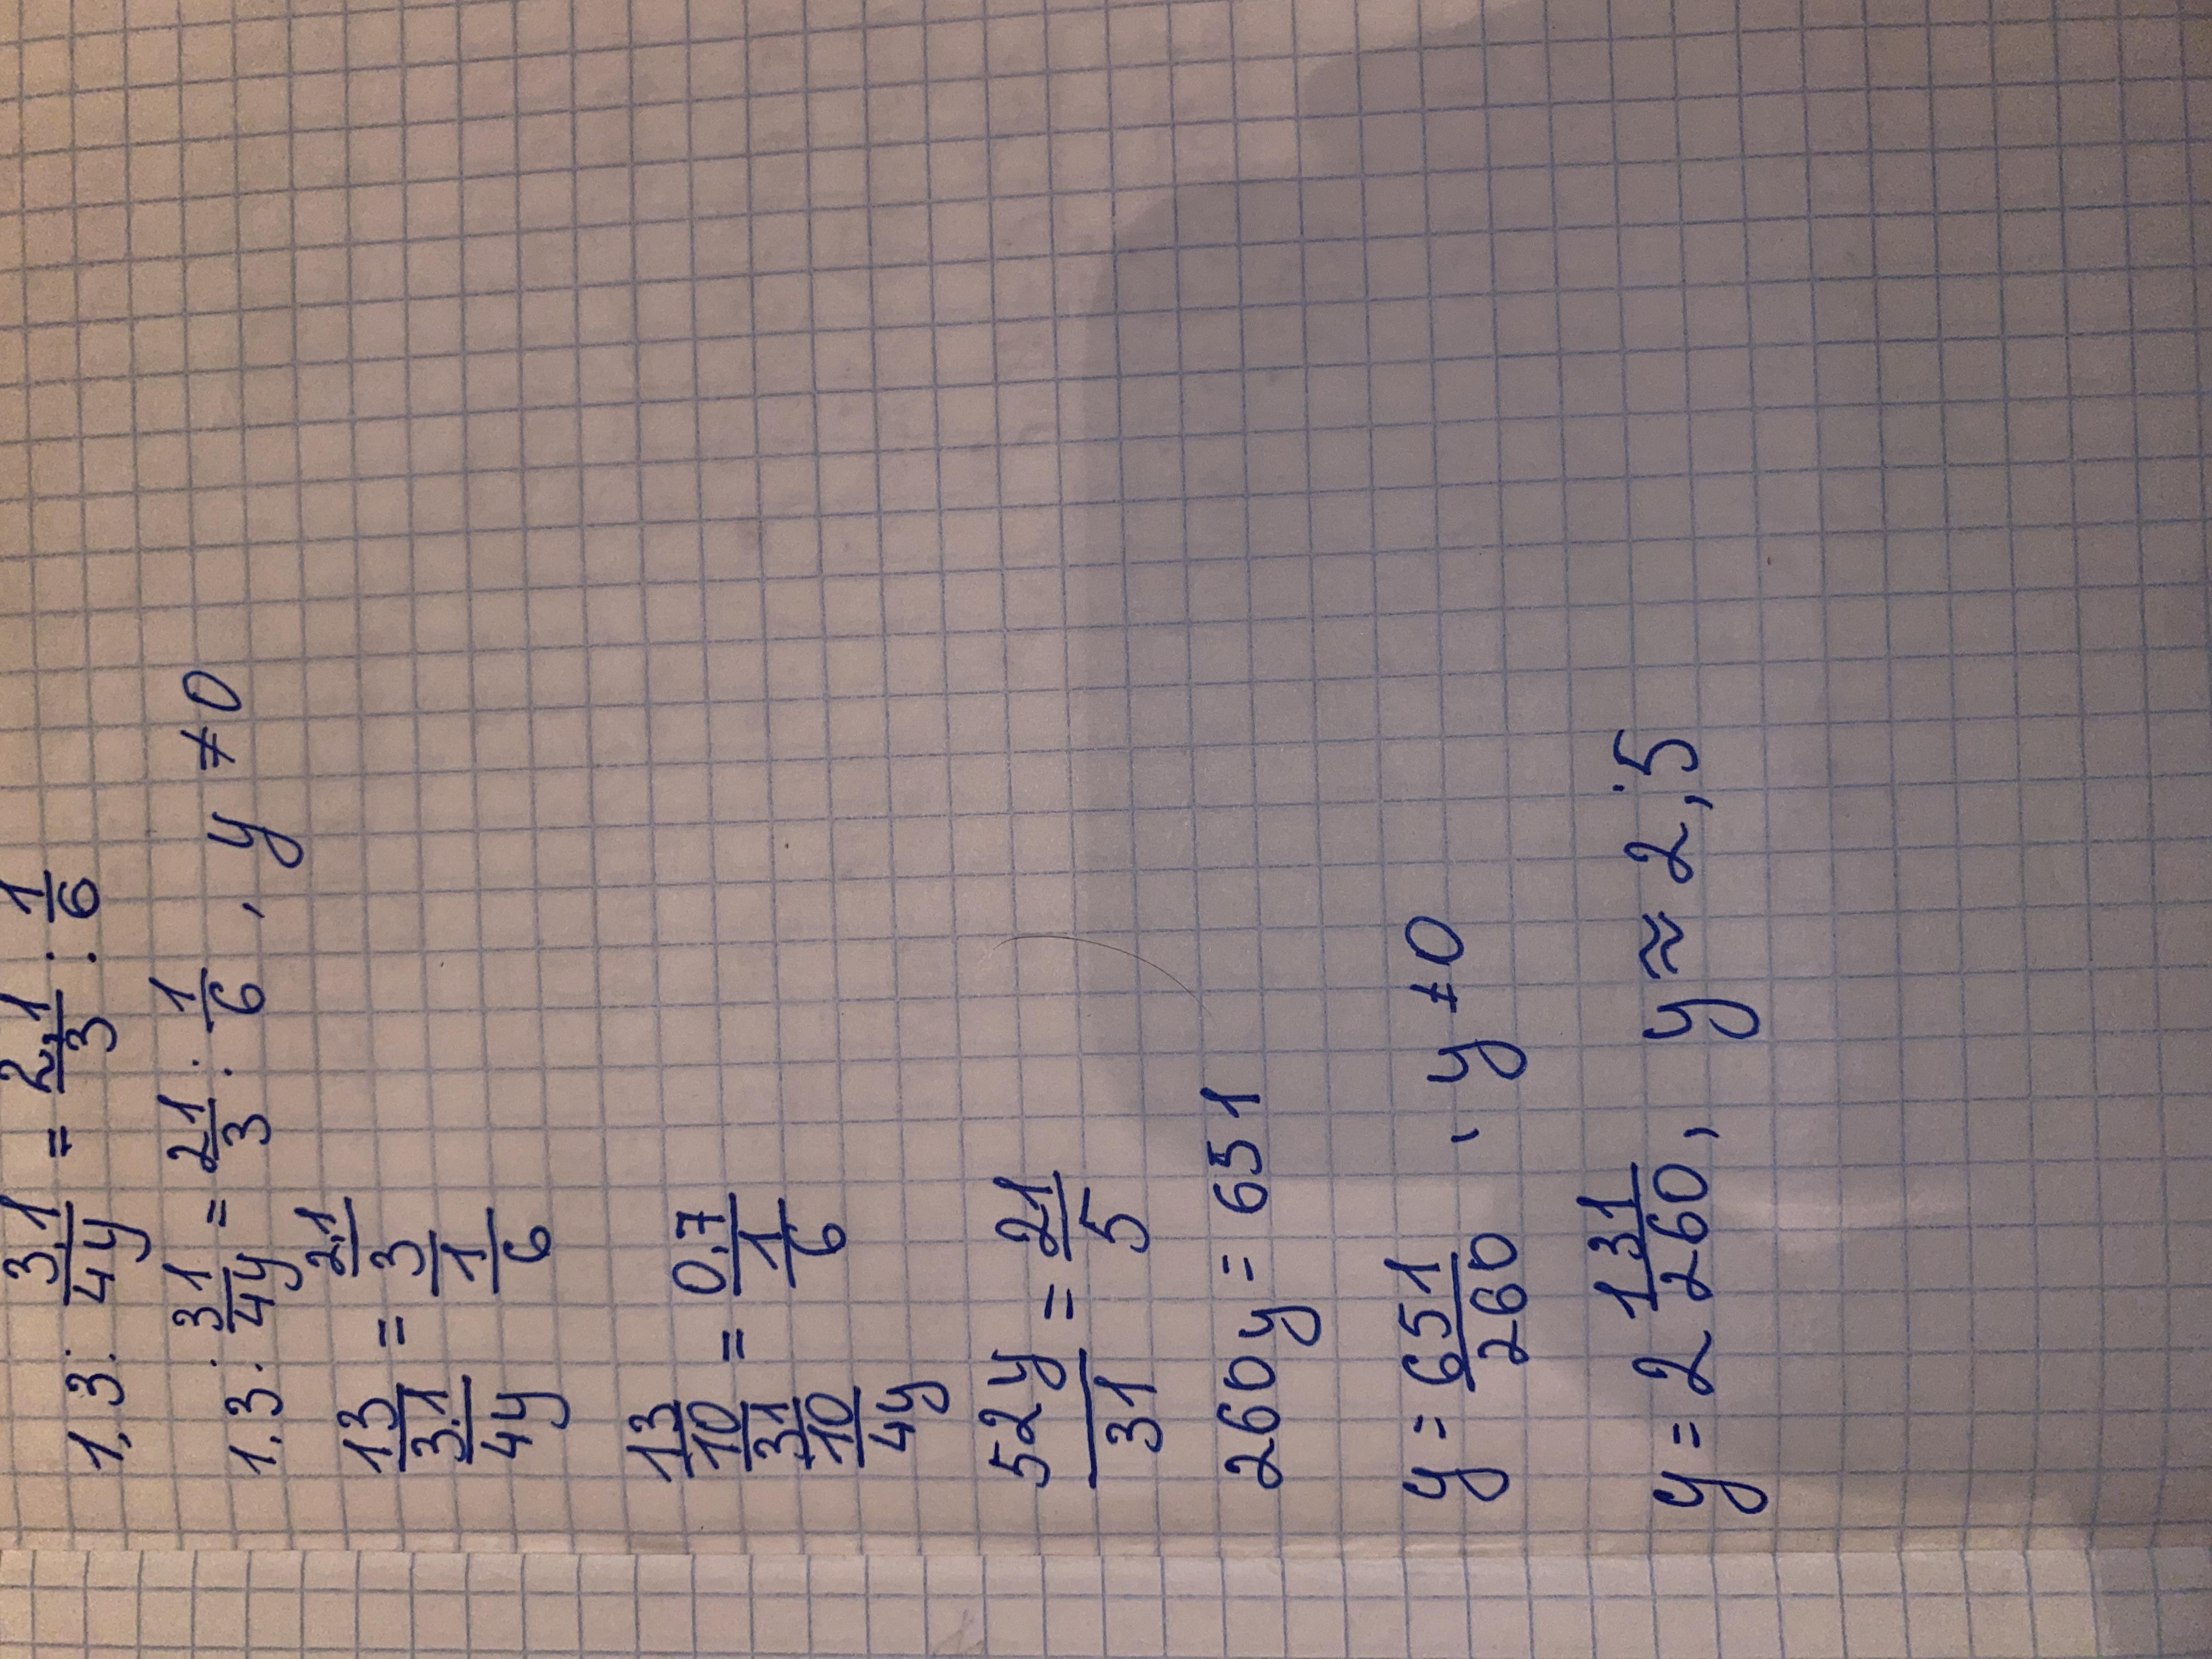 1,3 : 3,1/4y = 2,1/3 : 1/6
1,3 : 3,1/4y = 2,1/3 : 1/6 , y ≠ 0
1,3/(3,1/4y) = (2,1/3)/(1/6)
(13/10)/((31/10)/4y) = 0,7/(1/6)
52y/31 = 21/5
260y = 651
y = 651/260 , y ≠ 0
y = 2 131/260, y ≈ 2,5